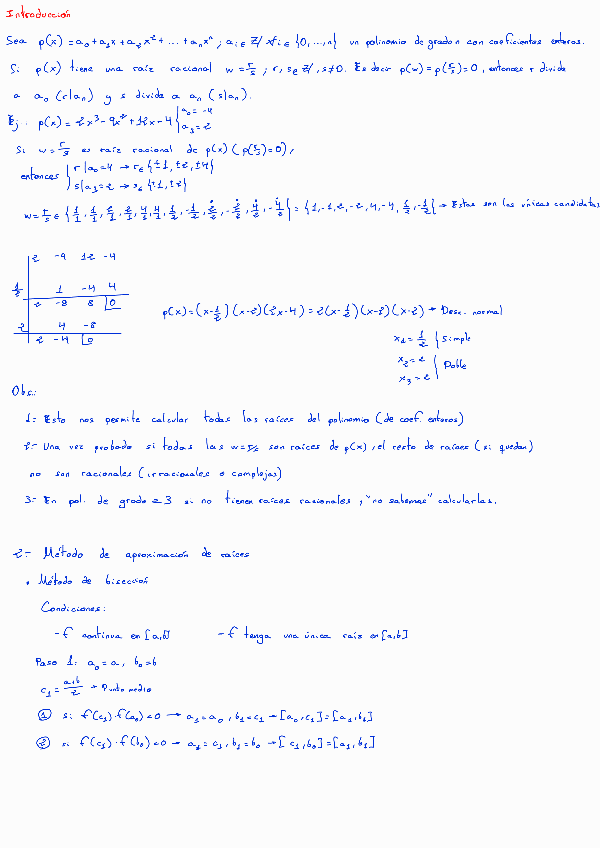 Introducción
Sea p(x) = a₀+a₁x+a₂x²+...+aₙxⁿ ; aᵢ ∈ Z / ∀i ∈ {0,...,n} un polinomio de grado n con coeficientes enteros.
Si p(x) tiene una raíz racional w = r/s ; r, s ∈ Z/, s≠0. Es decir p(w) = p(r/s) = 0, entonces r divide
a a₀ (r|aₙ) y s divide a aₙ (s|aₙ).
Ej.: p(x) = 2x³-9x²+12x-4 { a₀=-4 a₃=2
Si w = r/s es raíz racional de p(x) (p(r/s)=0),
entonces { r|a₀=4 → r ∈ {±1, ±2, ±4}
s|a₃=2 → s ∈ {±1, ±2}
= {1,-1,2,-2,4,-4,1/2,-1/2} → Estas son las únicas candidatas
2 -9 12 -4
1/2 1 -4 4
2 -8 8 0
2 4 -8
2 -4 0
p(x) = (x-1/2)(x-2)(2x-4) = 2(x-1/2)(x-2)(x-2) → Desc. normal
x₁ = 1/2 } Simple
x₂ = 2 } Doble
x₃ = 2
Obs.:
1.- Esto nos permite calcular todas las raíces del polinomio (de coef. enteros)
2.- Una vez probado si todas las w=r/s son raíces de p(x), el resto de raíces (si quedan)
no son racionales (irracionales o complejas)
3.- En pol. de grado ≥ 3 si no tienen raíces racionales, "no sabemos" calcularlas.
2.- Método de aproximación de raíces
• Método de bisección
Condiciones:
- f continua en [a,b] - f tenga una única raíz en [a,b]
Paso 1: a₀ = a, b₀ = b
c₁ = a+b/2 → Punto medio
① si f(c₁)·f(a₀) < 0 → a₁ = a₀, b₁ = c₁ → [a₀,c₁] = [a₁,b₁]
② si f(c₁)·f(b₀) < 0 → a₁ = c₁, b₁ = b₀ → [c₁,b₀] = [a₁,b₁]